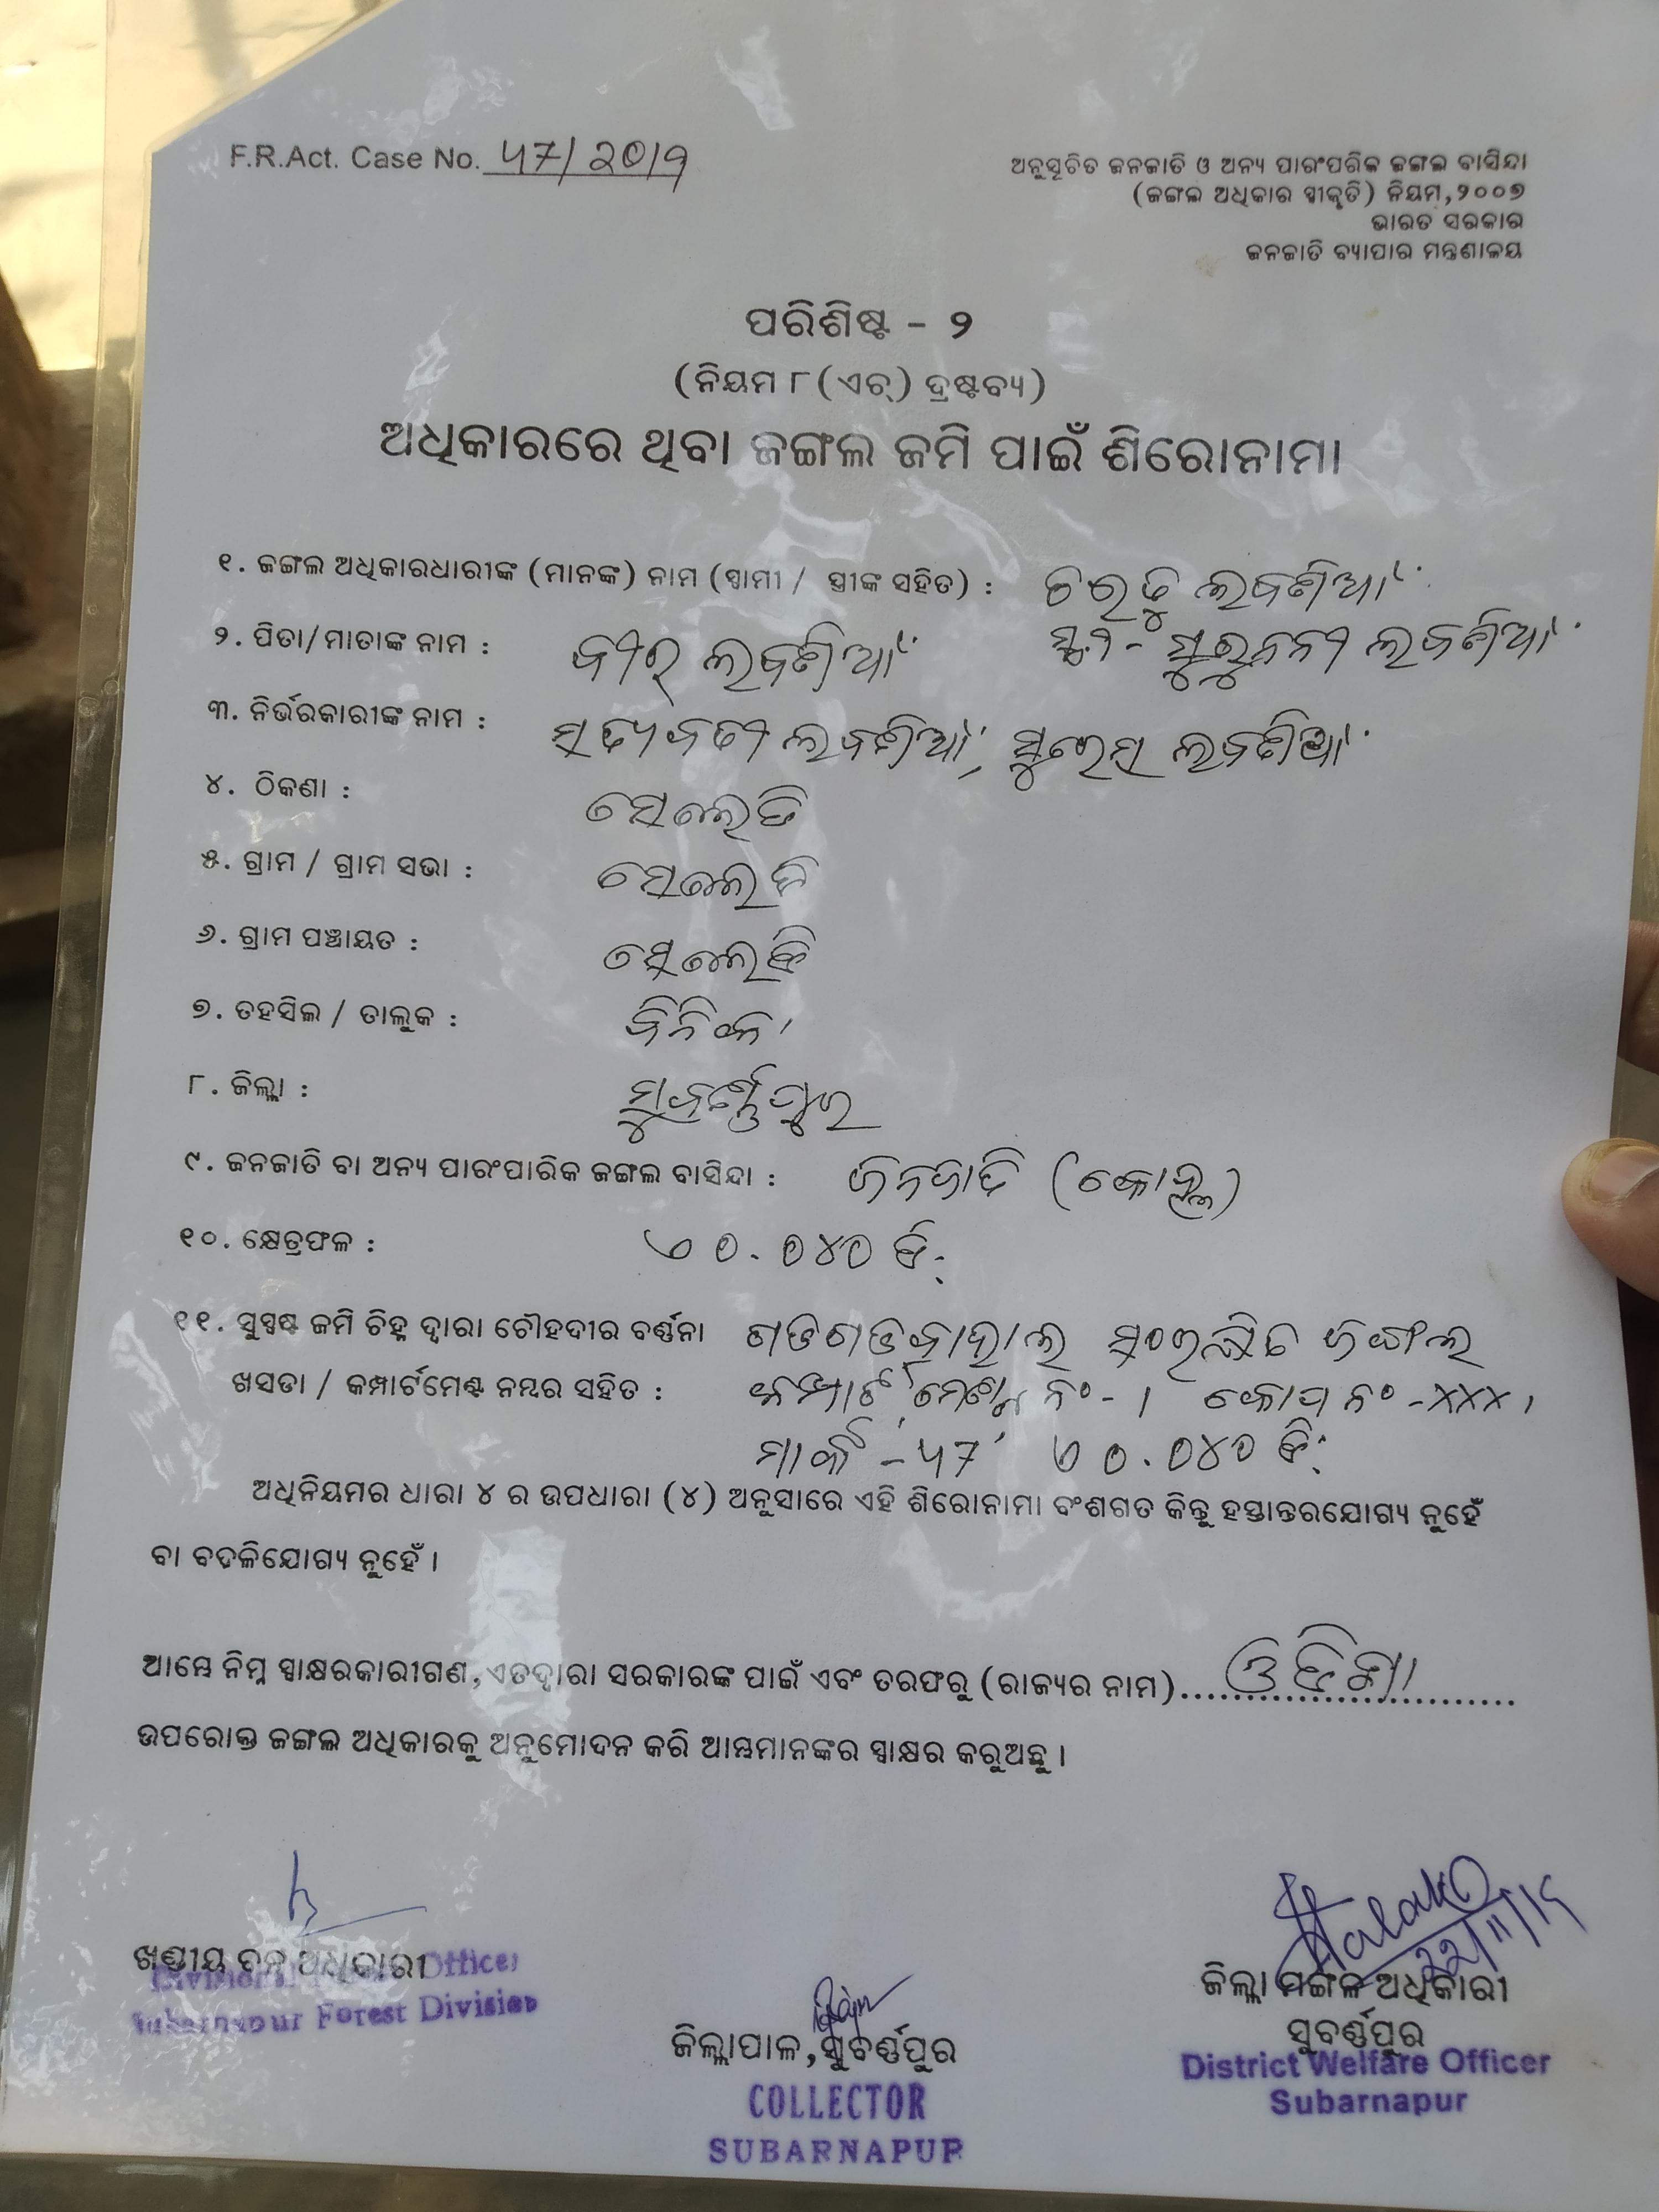 F.R.Act. Case No. 57/2019
ଅନୁସୂଚିତ ଜନଜାତି ଓ ଅନ୍ୟ ପାରଂପରିକ ଜଙ୍ଗଲ ବାସିନ୍ଦା
(ଜଙ୍ଗଲ ଅଧିକାର ସ୍ୱୀକୃତି) ନିୟମ,୨୦୦୭
ଭାରତ ସରକାର
ଜନଜାତି ବ୍ୟାପାର ମନ୍ତ୍ରଣାଳୟ
ପରିଶିଷ୍ଟ - ୨
(ନିୟମ ୮(ଏଚ୍) ଦ୍ରଷ୍ଟବ୍ୟ)
ଅଧିକାରରେ ଥିବା ଜଙ୍ଗଲ ଜମି ପାଇଁ ଶିରୋନାମା
୧. ଜଙ୍ଗଲ ଅଧିକାରଧାରୀଙ୍କ (ମାନଙ୍କ) ନାମ (ସ୍ୱାମୀ / ସ୍ତ୍ରୀଙ୍କ ସହିତ) : ଲବଣିଆଁ
ଲବଣିଆଁ
୨. ପିତା/ମାତାଙ୍କ ନାମ : ବୀର ଲବଣିଆଁ
୩. ନିର୍ଭରକାରୀଙ୍କ ନାମ : ସତ୍ୟବତୀ ଲବଣିଆଁ, ସୁରେସ ଲବଣିଆଁ
୪. ଠିକଣା : ସେଲେଡି
୫. ଗ୍ରାମ / ଗ୍ରାମ ସଭା : ସେଲେଡି
୬. ଗ୍ରାମ ପଞ୍ଚାୟତ : ସେଲେଡି
୭. ତହସିଲ / ତାଲୁକ : ବିନିକା
୮. ଜିଲ୍ଲା : ସୁବର୍ଣ୍ଣପୁର
୯. ଜନଜାତି ବା ଅନ୍ୟ ପାରଂପାରିକ ଜଙ୍ଗଲ ବାସିନ୍ଦା : ଜନଜାତି (କୋହ୍ଲ)
୧୦. କ୍ଷେତ୍ରଫଳ : ଏ ୦.୦୪୦ ଡି:
୧୧. ସୁସ୍ପଷ୍ଟ ଜମି ଚିହ୍ନ ଦ୍ୱାରା ଚୌହଦୀର ବର୍ଣ୍ଣନା ସଂରକ୍ଷିତ ଜଙ୍ଗଲ
ଖସଡା / କମ୍ପାର୍ଟମେଣ୍ଟ ନମ୍ବର ସହିତ : କମ୍ପାର୍ଟମେଣ୍ଟ ନଂ-1 କୋପ ନଂ-XXX,
ମାର୍କା-57 ଏ ୦.୦୪୦ ଡି:
ଅଧିନିୟମର ଧାରା ୪ ର ଉପଧାରା (୪) ଅନୁସାରେ ଏହି ଶିରୋନାମା ବଂଶଗତ କିନ୍ତୁ ହସ୍ତାନ୍ତରଯୋଗ୍ୟ ନୁହେଁ
ବା ବଦଳିଯୋଗ୍ୟ ନୁହେଁ ।
ଆମ୍ଭେ ନିମ୍ନ ସ୍ୱାକ୍ଷରକାରୀଗଣ,ଏତଦ୍ୱାରା ସରକାରଙ୍କ ପାଇଁ ଏବଂ ତରଫରୁ (ରାଜ୍ୟର ନାମ)...ଓଡ଼ିଶା...
ଉପରୋକ୍ତ ଜଙ୍ଗଲ ଅଧିକାରକୁ ଅନୁମୋଦନ କରି ଆମ୍ଭମାନଙ୍କର ସ୍ୱାକ୍ଷର କରୁଅଛୁ ।
22/11/19
ଖଣ୍ଡୀୟ ବନ ଅଧିକାରୀ
Divisional Forest Officer
Subarnapur Forest Division
ଜିଲ୍ଲାପାଳ,ସୁବର୍ଣ୍ଣପୁର
COLLECTOR
SUBARNAPUR
ଜିଲ୍ଲା ମଙ୍ଗଳ ଅଧିକାରୀ
ସୁବର୍ଣ୍ଣପୁର
District Welfare Officer
Subarnapur